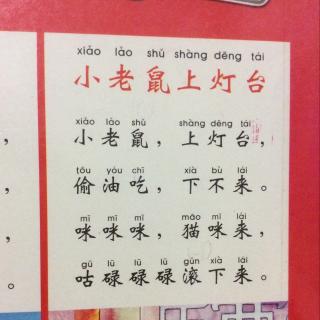 xiǎo lǎo shǔ shàng dēng tái
小老鼠上灯台
xiǎo lǎo shǔ shàng dēng tái
小老鼠，上灯台，
tōu yóu chī xià bù lái
偷油吃，下不来。
mī mī mī māo mī lái
咪咪咪，猫咪来，
gū lū lū lū gǔn xià lái
咕碌碌碌滚下来。